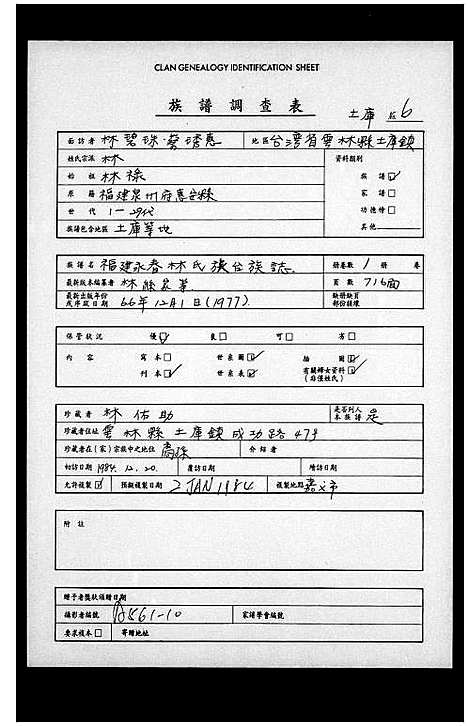 CLAN GENEALOGY IDENTIFICATION SHEET
族譜調查表
土庫 6
面訪者 林碧珠 地區 台灣省雲林縣土庫鎮
姓氏宗派 林 資料類別
始祖 林祿 族譜☑
原籍 福建泉州府惠安縣 家譜□
世代 1—29代 功德榜□
族譜包含地區 土庫等地 其他
族譜名 福建永春林氏族台族誌 冊卷數 1 冊 卷
最新版本編纂者 林 頁數 716面
最新出版年份或序跋日期 66年12月1日(1977) 缺冊缺頁部份損壞
保管狀況 優☑ 良□ 可□ 劣□
內容 寫本□ 世系圖☑ 插圖☑
刊本☑ 世系表☑ 有關婦女資料☑(非僅姓氏)
珍藏者 林佑助 是否列入本族譜 是
珍藏者住址 雲林縣土庫鎮成功路47号
珍藏者在(家)宗族中之地位 裔孫 介紹者
初訪日期 1984.12.20. 覆訪日期 續訪日期
允許複製☑ 預擬複製日期 2 JAN 1984 複製地點 嘉义市
附註
贈予者獎狀頒贈日期
攝影者編號 A861-10 家譜學會編號
要求複本□ 寄贈地址